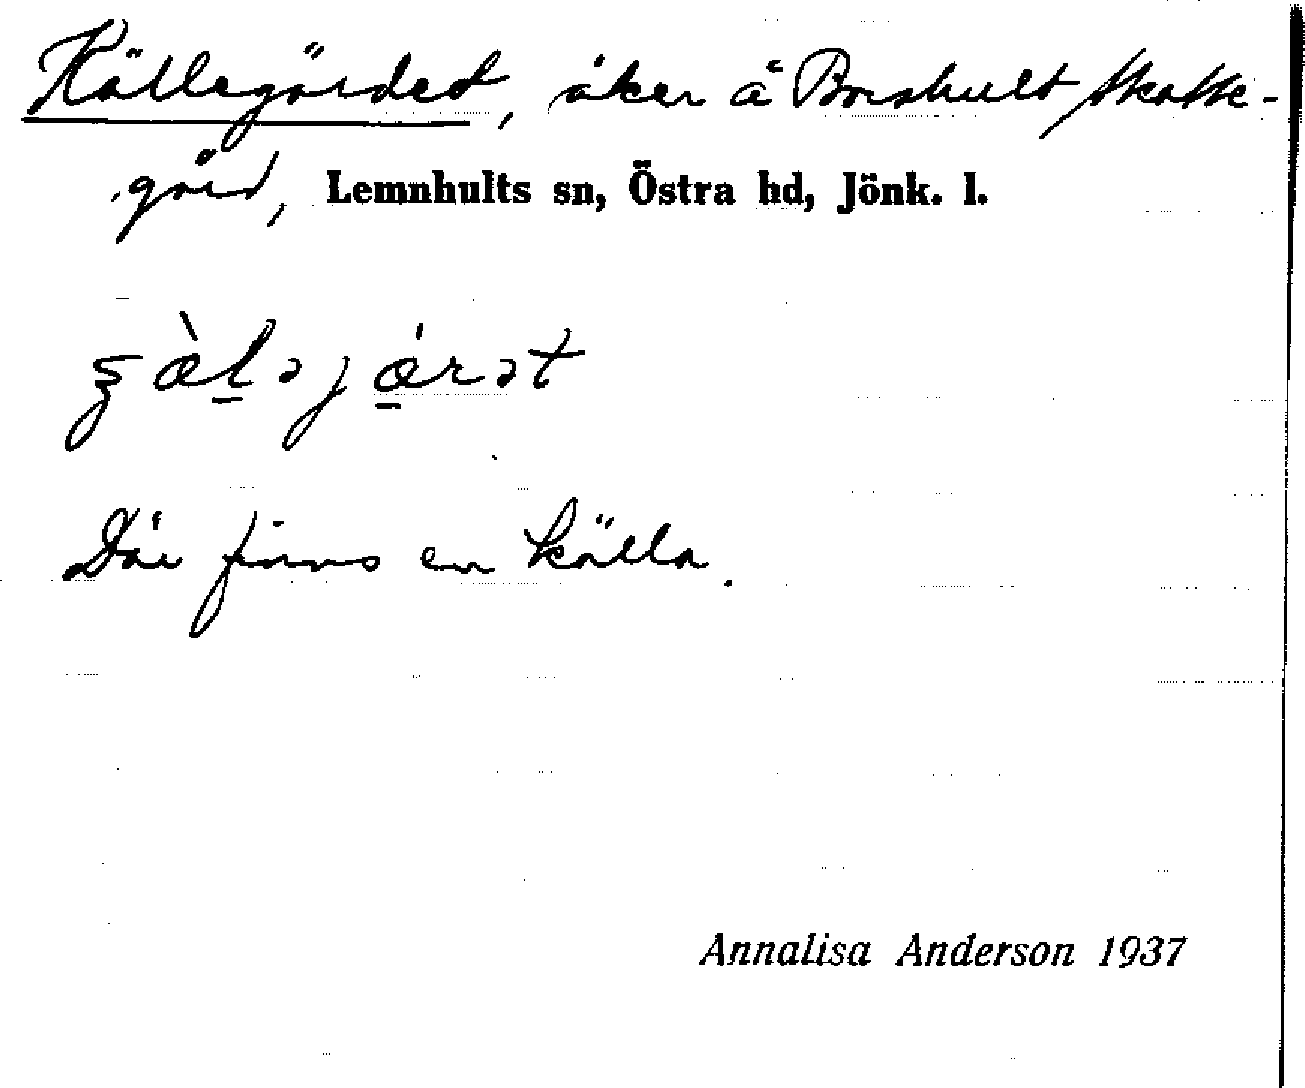 Källegärdet, åker å Borshult skatte-
gård, Lemnhults sn, Östra hd, Jönk. l.
Där finns en källa.
Annalisa Anderson 1937